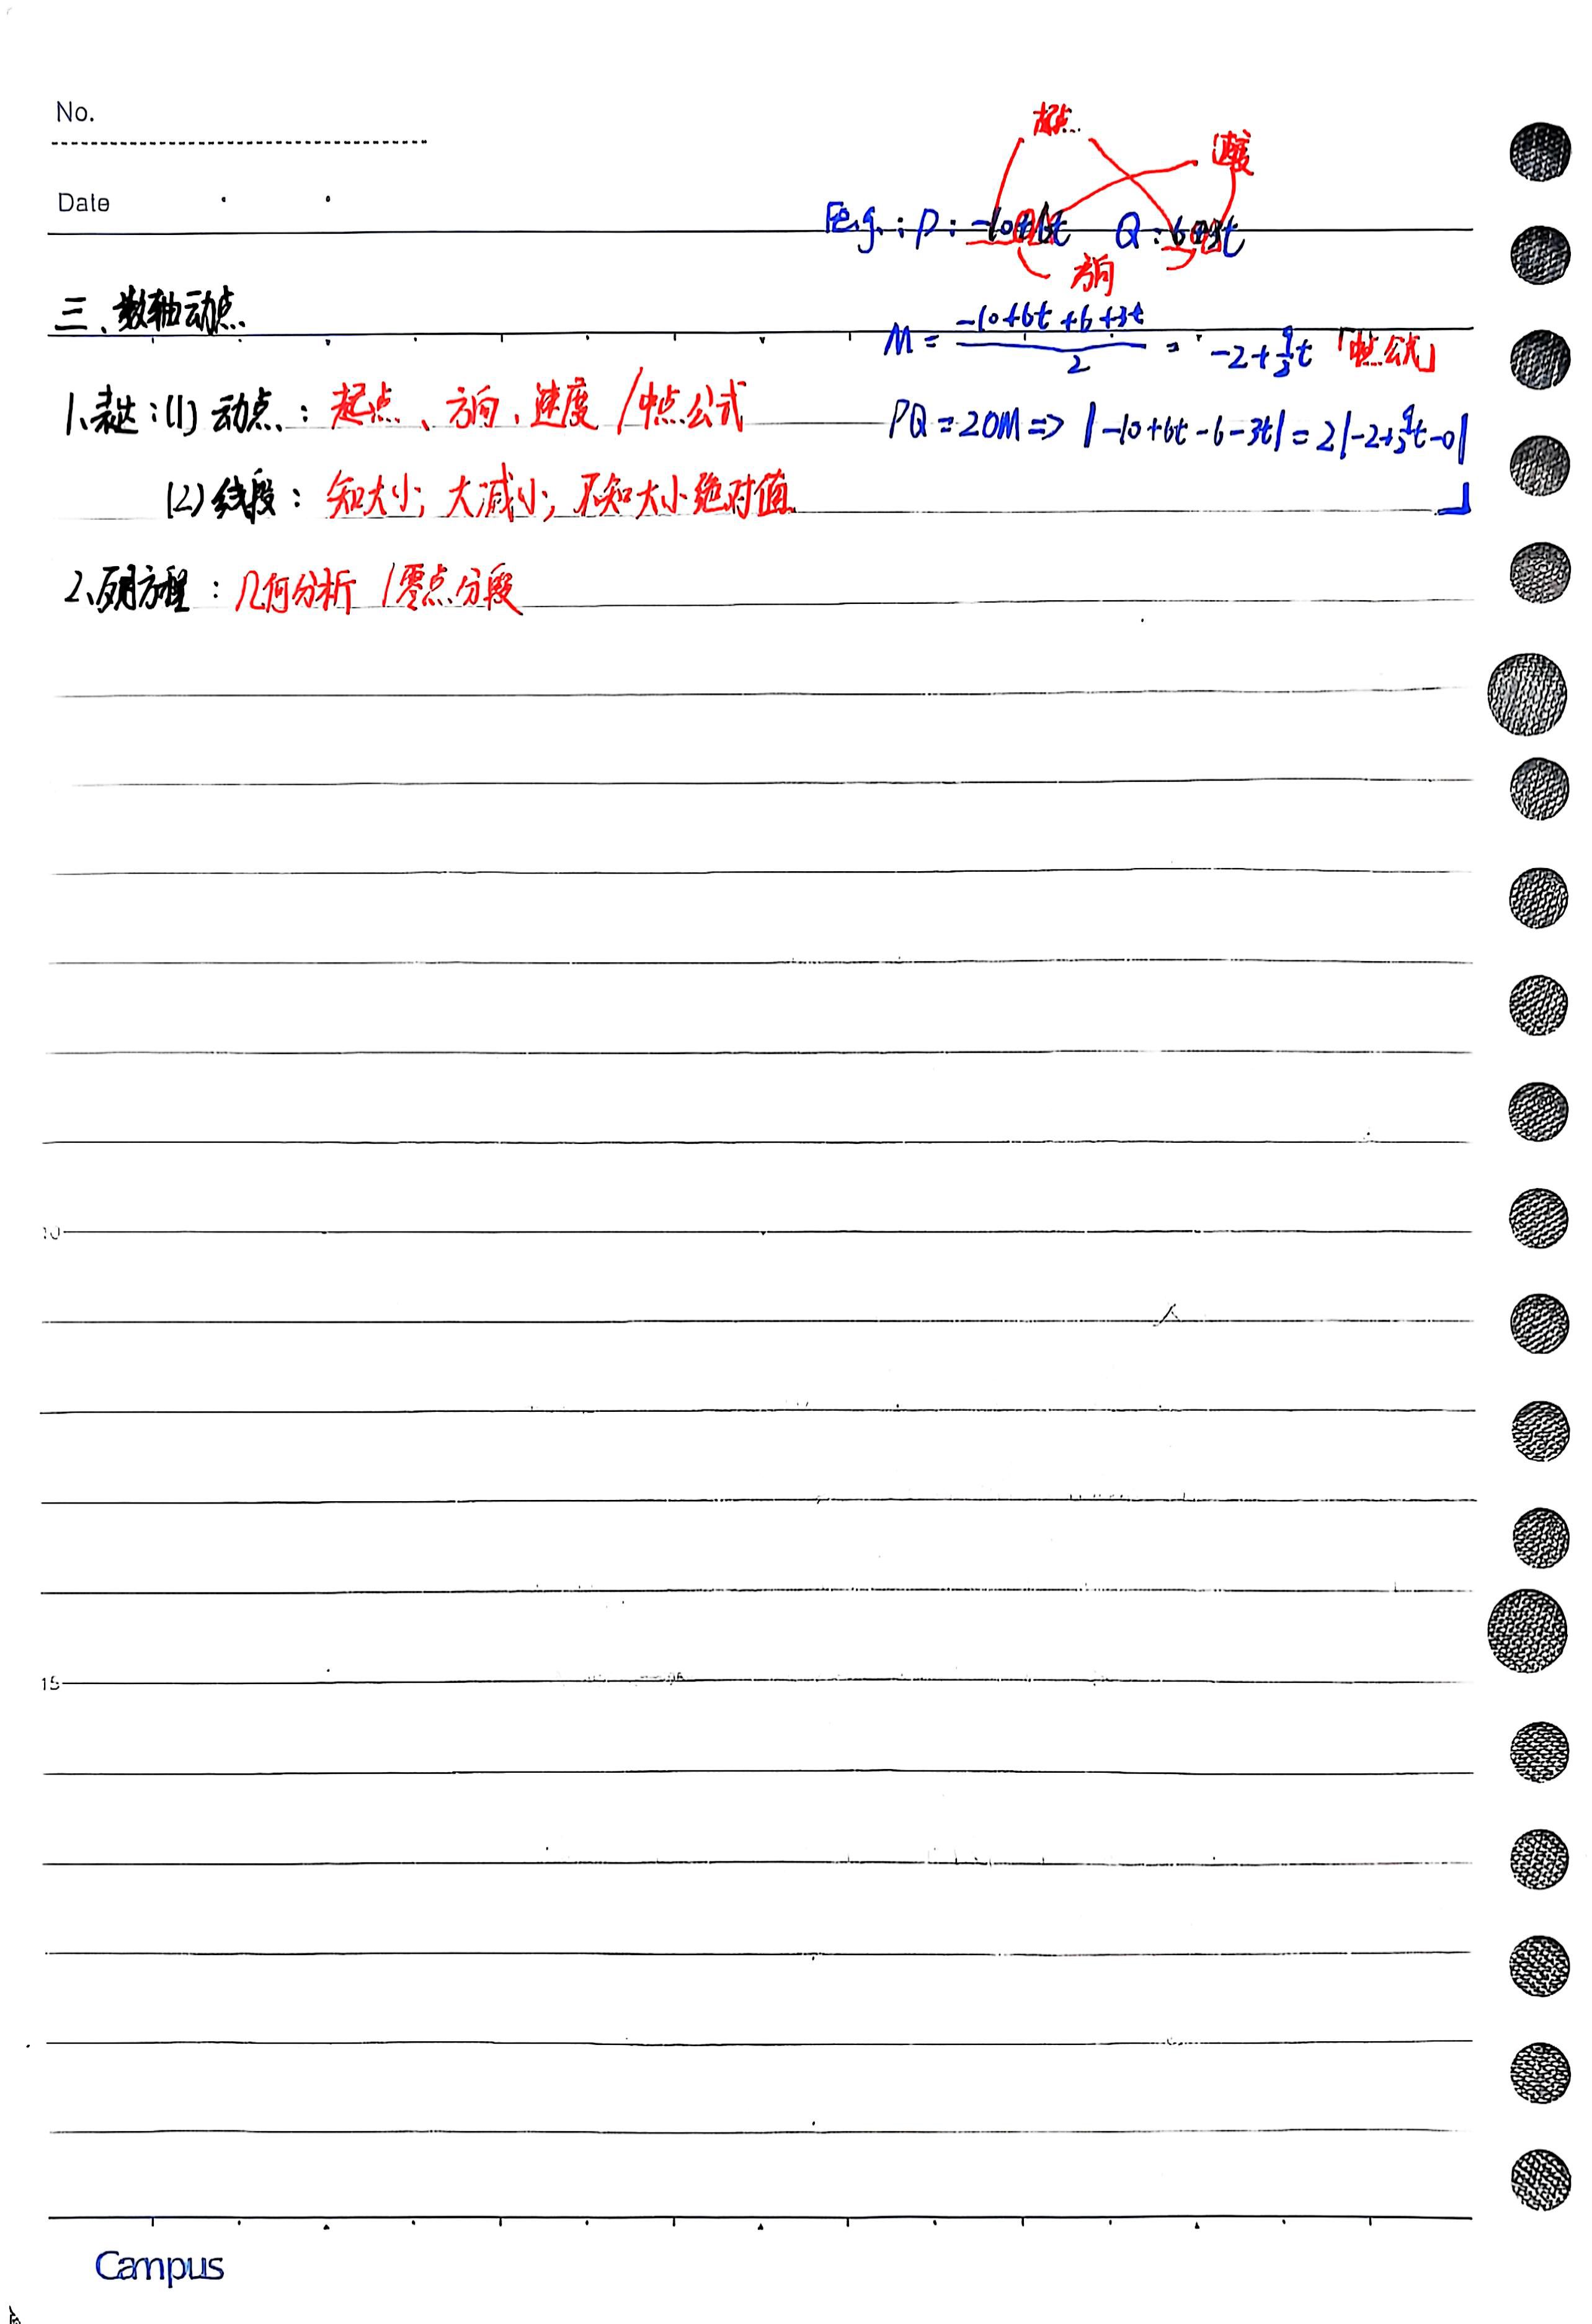 No.
Date
起点
速度
「e.g.: P: -10+6t Q: 6+3t
方向
三、数轴动点
M = \frac{-10+6t+6+3t}{2} = -2+\frac{9}{2}t 「中点公式」
1、表达:(1) 动点:起点、方向、速度/中点公式
PQ=2OM⇒ |-10+6t-6-3t|=2|-2+\frac{9}{2}t-0|
」
(2) 线段:知大小;大减小;不知大小绝对值
2、列方程:几何分析/零点分段
10
15
Campus